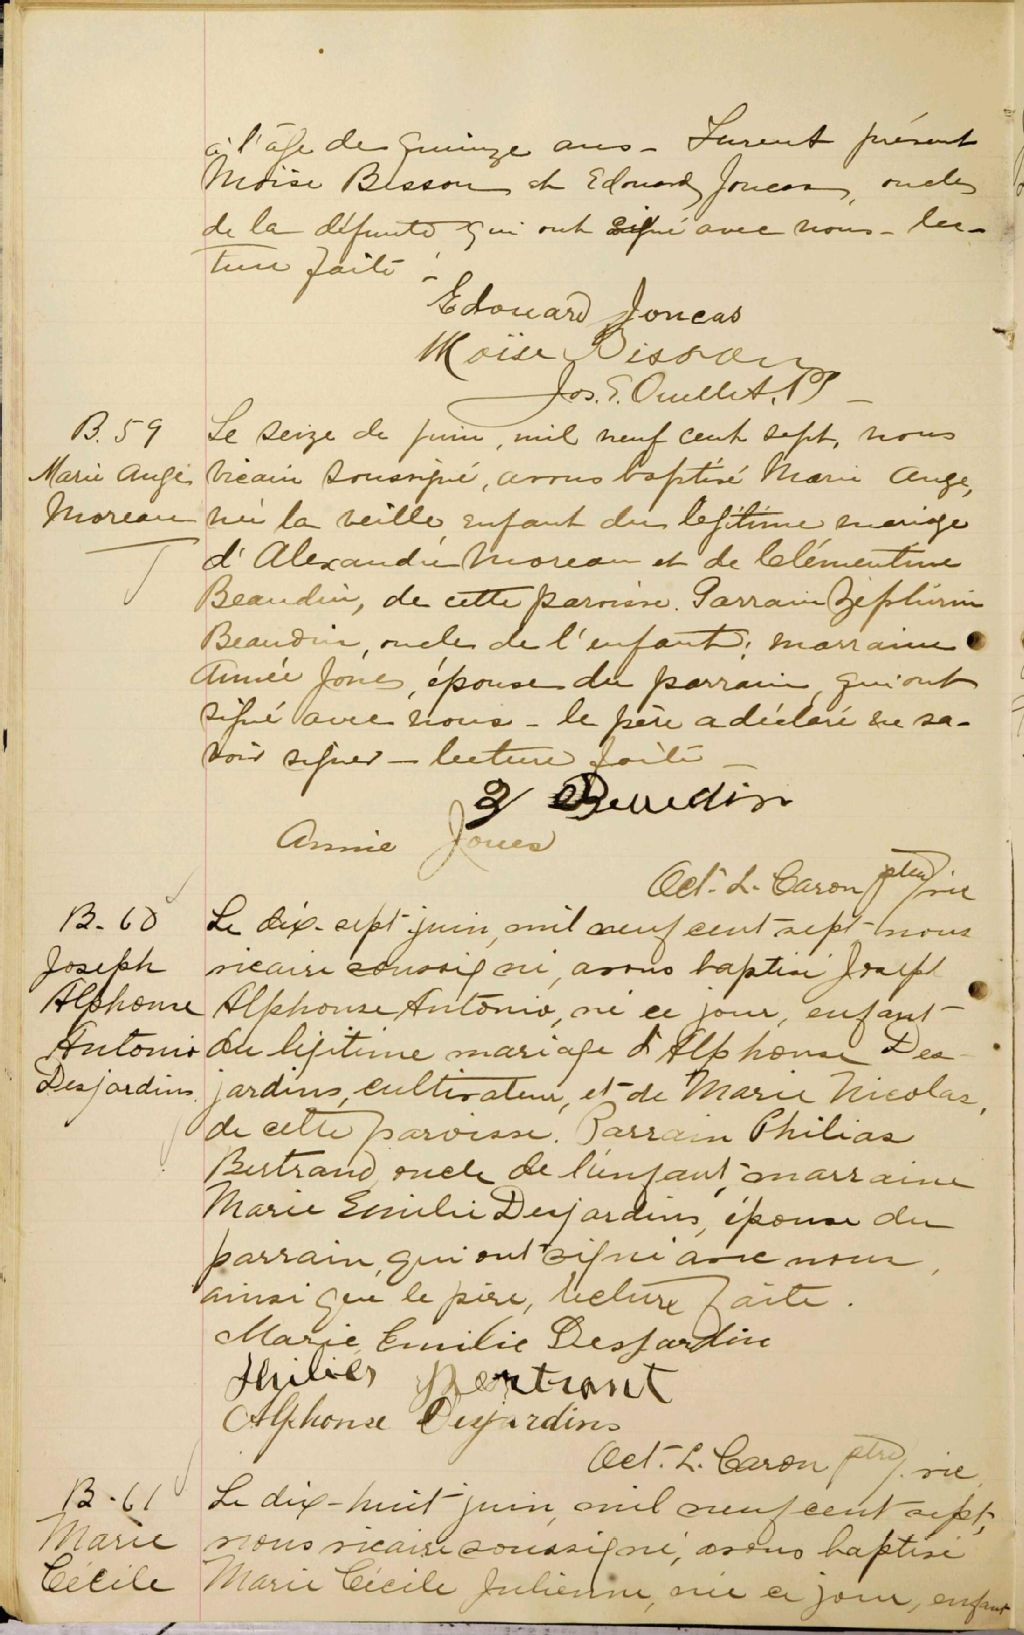 à l'âge de quinze ans - Furent présent
Moise Bisson et Edouard Joncas, oncles
de la défunte qui ont signé avec nous - lec-
ture faite -
Edouard Joncas
Moïse Bisson
Jos. E. Ouellet, P
B. 59
Marie Ange
Moreau
Le seize de juin, mil neuf cent sept, nous
vicaire soussigné, avons baptisé Marie Ange,
née la veille enfant du légitime mariage
d'Alexandre Moreau et de Clémentine
Beaudin, de cette paroisse. Parrain Zéphirin
Beaudin, oncle de l'enfant; marraine
Annie Jones, épouse du parrain, qui ont
signé avec nous - le père a déclaré ne sa-
voir signer - lecture faite -
Z Beaudin
Annie Jones
Oct. L. Caron ptre vic
B. 60
Joseph
Alphonse
Antonio
Desjardins
Le dix-sept juin, mil neuf cent sept nous
vicaire soussigné, avons baptisé Joseph
Alphonse Antonio, né ce jour, enfant
du légitime mariage d'Alphonse Des-
jardins, cultivateur, et de Marie Nicolas,
de cette paroisse. Parrain Philias
Bertrand, oncle de l'enfant, marraine
Marie Emilie Desjardins, épouse du
parrain, qui ont signé avec nous,
ainsi que le père, lecture faite.
Marie Emilie Desjardin
Philias Bertrant
Alphonse Desjardins
Oct. L. Caron ptre. vic.
B. 61
Marie
Cécile
Le dix-huit juin, mil neuf cent sept,
nous vicaire soussigné, avons baptisé
Marie Cécile Julienne, née ce jour, enfant